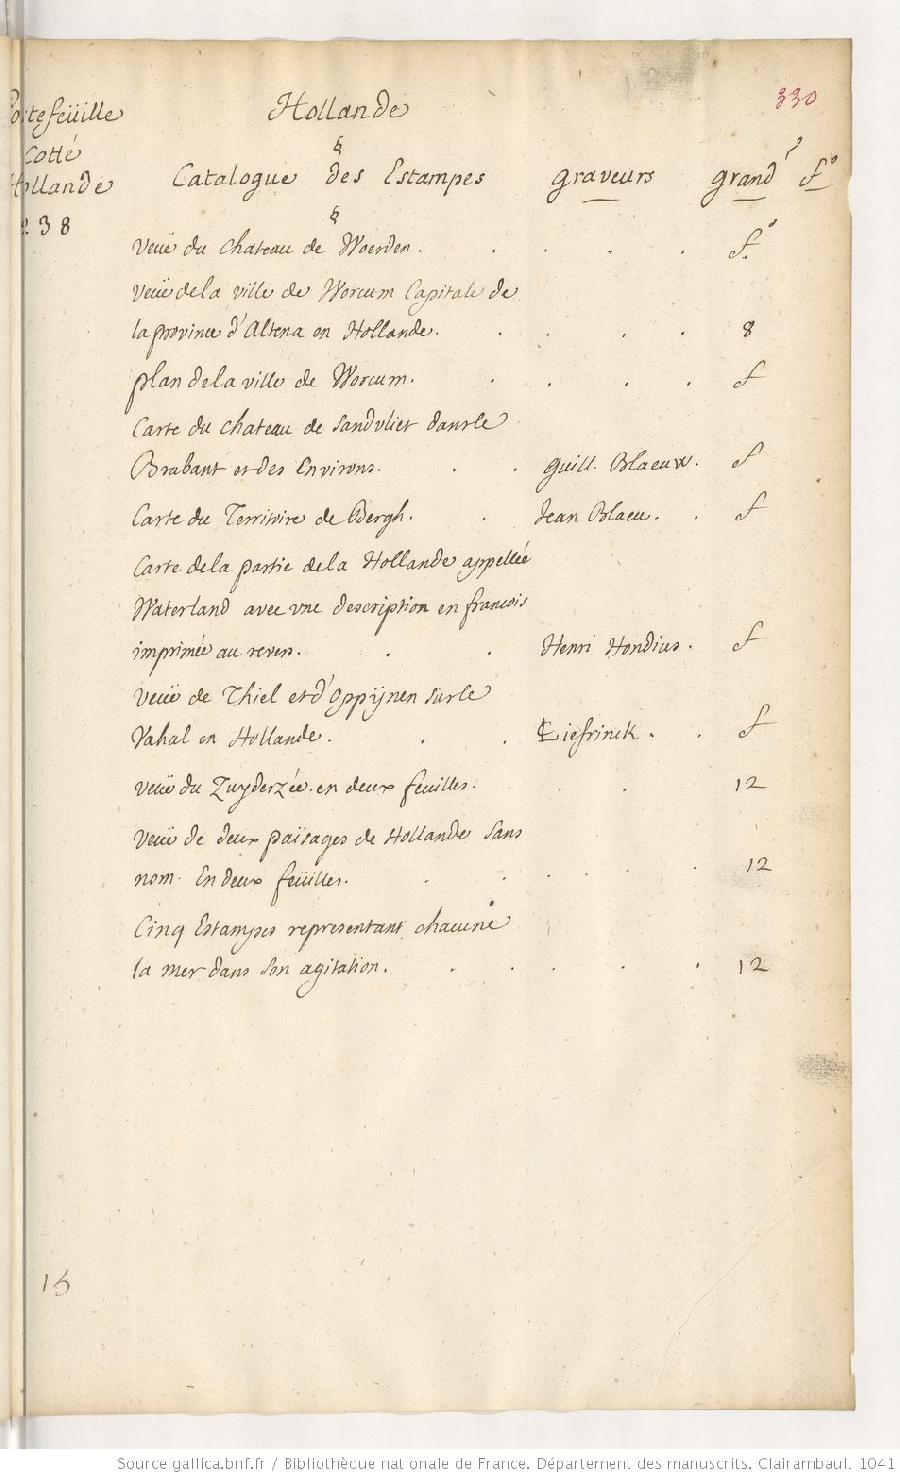 330
Portefeüille Hollande
Cotté §
Hollande Catalogue des Estampes graveurs grand.r f.o
238 §
Veuë du chateau de Woerden . . . . . f.o
Veuë de la ville de Worcum Capitale de
la province d'Altena en Hollande . . . . 8
plan de la ville de Worcum . . . . . f
Carte du chateau de Sandvliet dans le
Brabant et des Environs . . . Guill. Blaeuw . f
Carte du Territoire de Bergh . . Jean Blaeu . . f
Carte de la partie de la Hollande appellée
Waterland avec vne description en francois
imprimée au revers . . . Henri Hondius . f
Veuë de Thiel et d'Oppÿnen sur le
Vahal en Hollande . . . Liefrinck . . f
Veuë du Zuyderzée en deux feuilles . . 12
Veuë de deux païsages de Hollande Sans
nom. En deux feüilles . . . . . . 12
Cinq Estampes representant chacune
la mer dans son agitation . . . . . 12
15
Source gallica.bnf.fr / Bibliothèque nationale de France. Département des manuscrits. Clairambault 1041